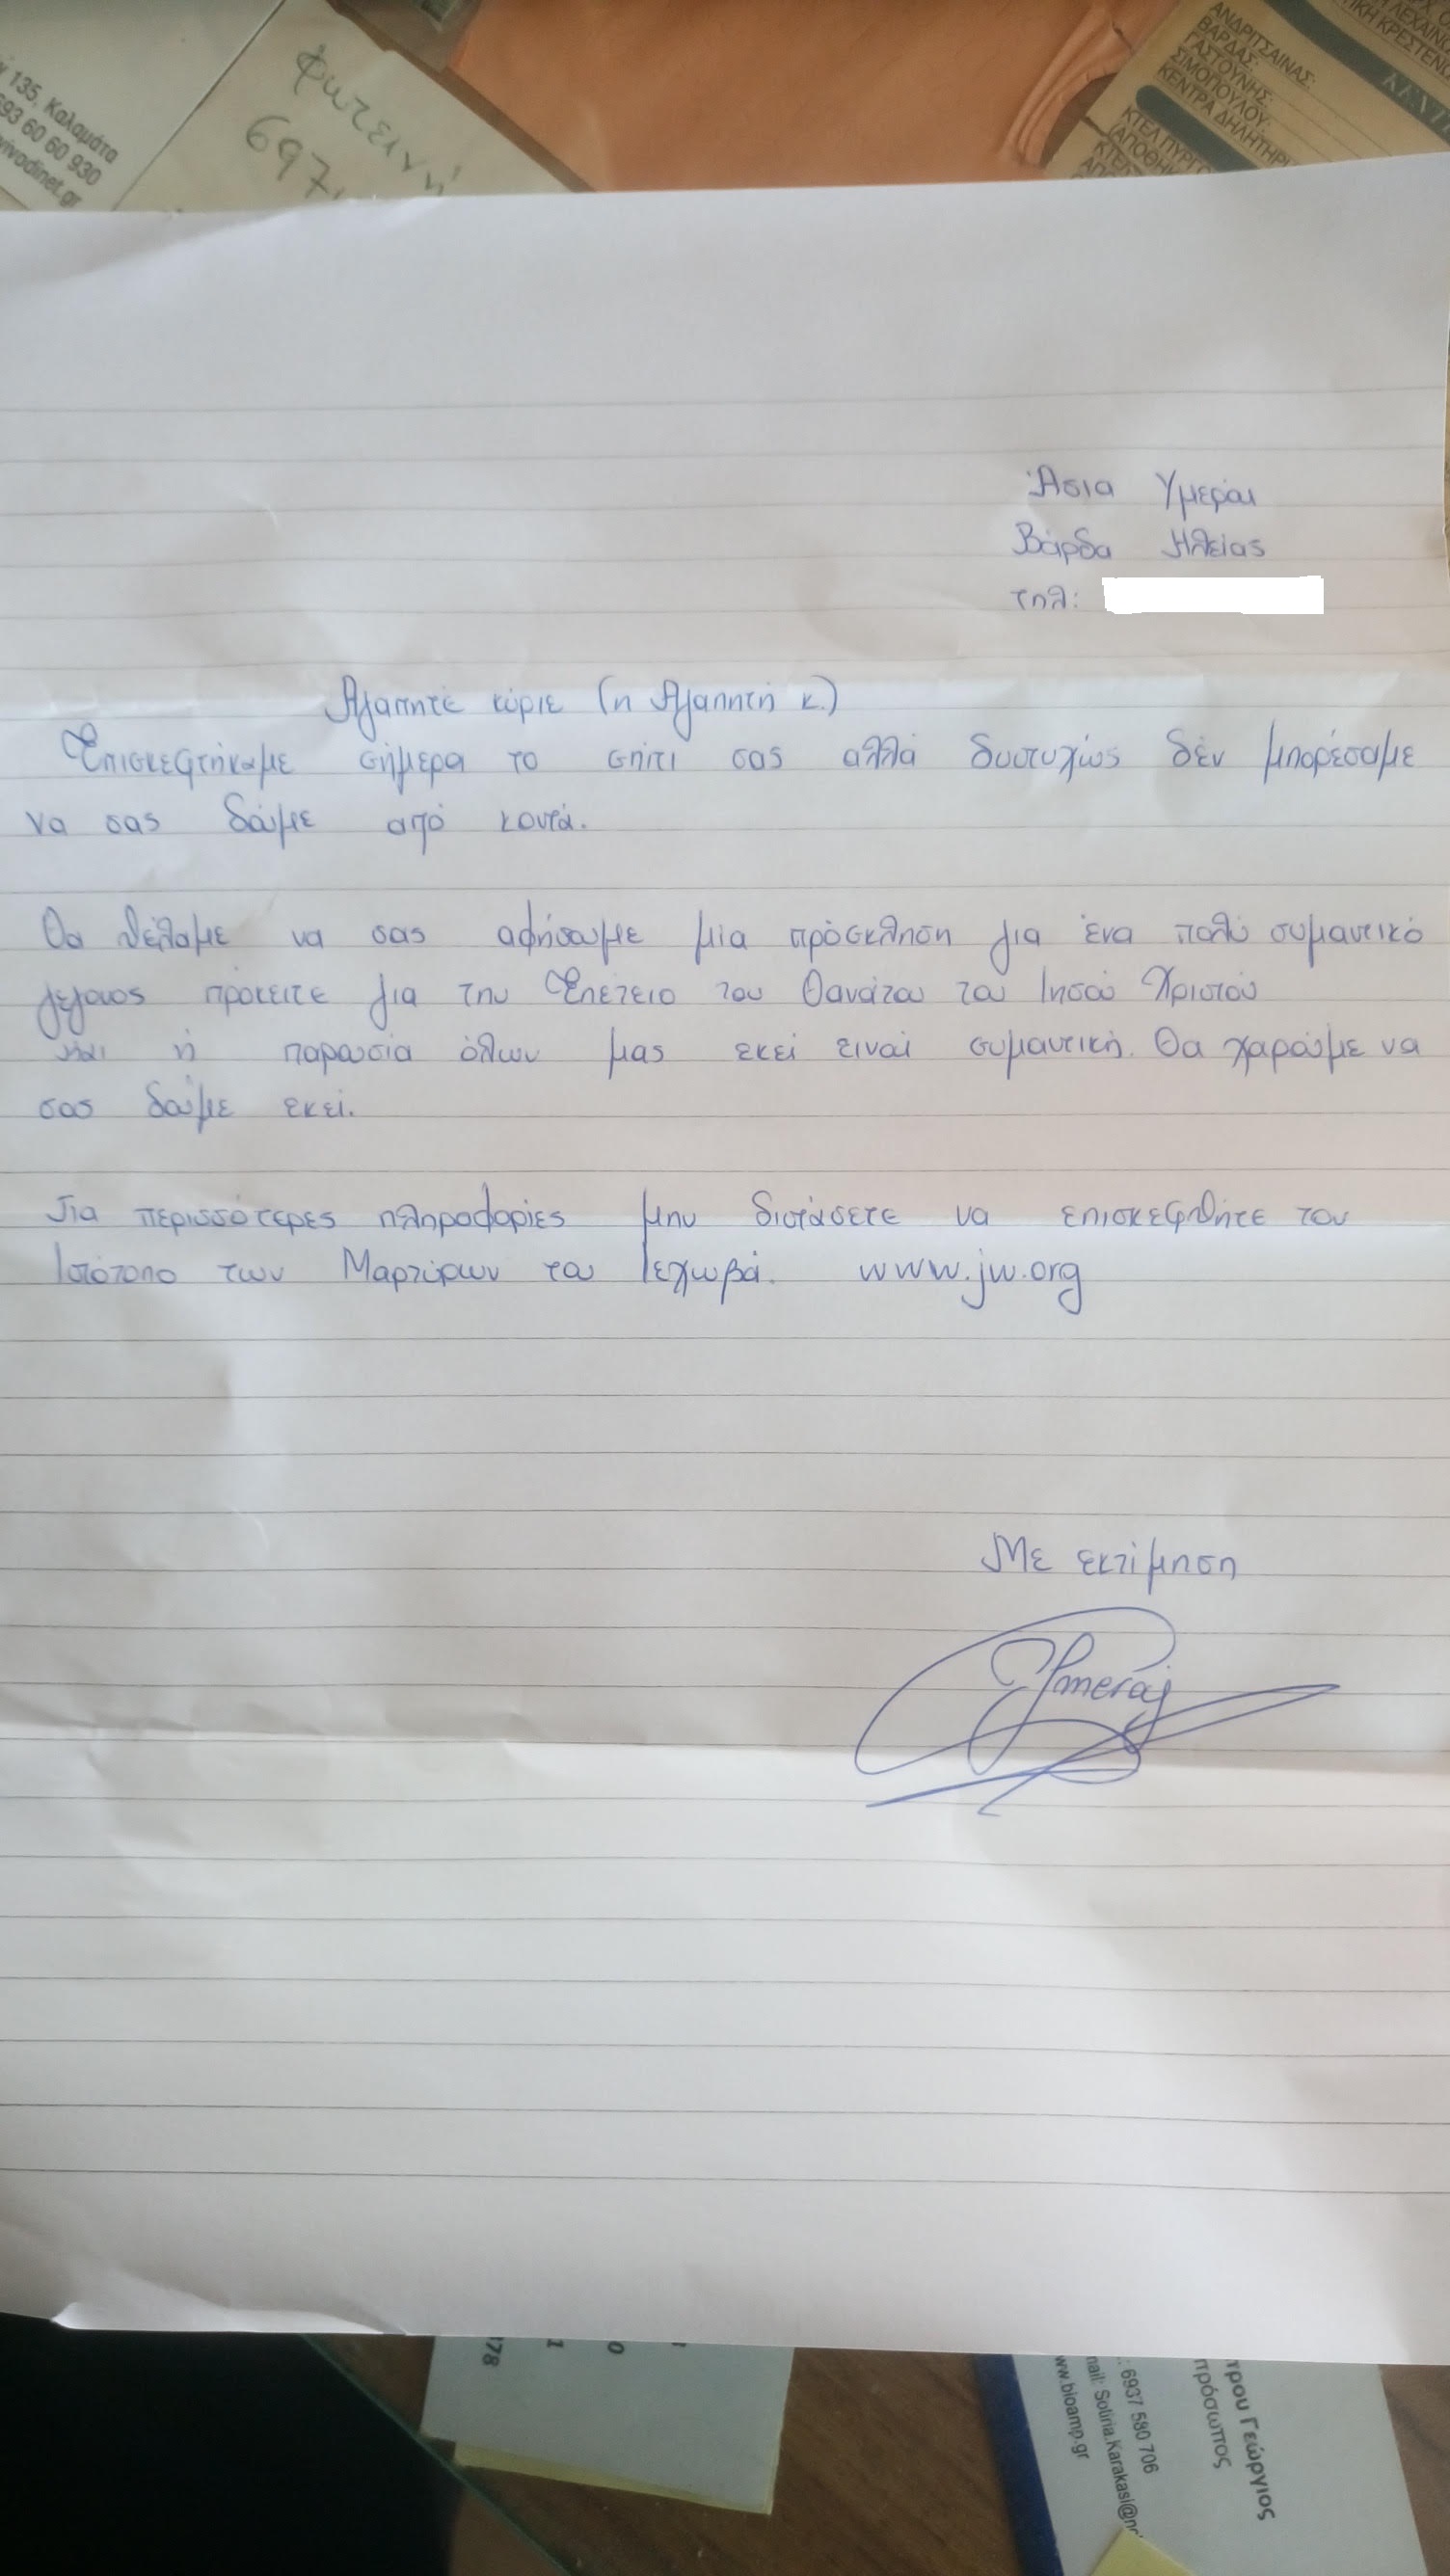 135, Καλαμάτα
693 60 60 930
vivodinet.gr
φωτεινή
697
ΑΝΔΡΙΤΣΑΙΝΑΣ:
ΒΑΡΔΑΣ:
ΓΑΣΤΟΥΝΗΣ:
ΣΙΜΟΠΟΥΛΟΥ:
ΚΕΝΤΡΑ ΔΗΛΗΤΗΡΙ
Άσια Υμεράι
Βάρδα Ηλείας
τηλ:
Αγαπητέ κύριε (η Αγαπητή κ.)
Επισκεφτήκαμε σήμερα το σπίτι σας αλλά δυστυχώς δέν μπορέσαμε
να σας δούμε από κοντά.
Θα θέλαμε να σας αφήσουμε μία πρόσκληση για ένα πολύ συμαντικό
γεγονος πρόκειτε για την Επέτειο του Θανάτου του Ιησού Χριστού
και ή παρουσία όλων μας εκεί ειναί συμαντική. Θα χαρούμε να
σας δούμε εκεί.
Για περισσότερες πληροφορίες μην διστάσετε να επισκεφθήτε τον
Ιστότοπο των Μαρτύρων του Ιεχωβά. www.jw.org
Με εκτίμηση
Ymeraj
178
1
0
τρου Γεώργιος
πρόσωπος
: 6937 580 706
mail: Sotiria.Karakasi@
ww.bioamp.gr